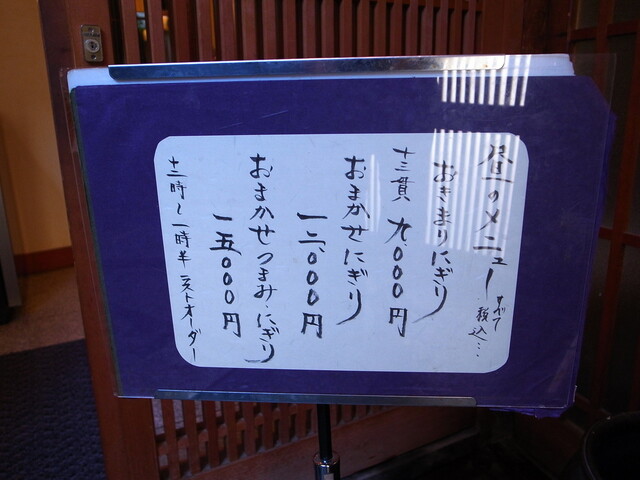 昼のメニュー
すべて税込…
おきまりにぎり
十三貫 九〇〇〇円
おまかせにぎり
一二〇〇〇円
おまかせつまみ・にぎり
一五〇〇〇円
十二時〜一時半 ラストオーダー